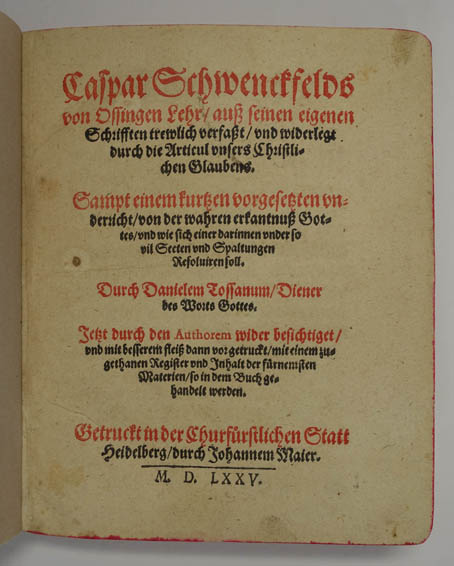 Caspar Schwenckfelds
von Ossingen Lehr/ auß seinen eigenen
Schrifften trewlich verfaßt/ vnd widerlegt
durch die Articul vnsers Christli-
chen Glaubens.
Sampt einem kurtzen vorgesetzten vn-
derricht/ von der wahren erkantnuß Got-
tes/ vnd wie sich einer darinnen vnder so
vil Secten vnd Spaltungen
Resoluiren soll.
Durch Danielem Tossanum/ Diener
des Worts Gottes.
Jetzt durch den Authorem wider besichtiget/
vnd mit besserem fleiß dann vor getruckt/ mit einem zu-
gethanen Register vnd Inhalt der fürnemsten
Materien/ so in dem Buch ge-
handelt werden.
Getruckt in der Churfürstlichen Statt
Heidelberg/ durch Johannem Maier.
M. D. LXXV.